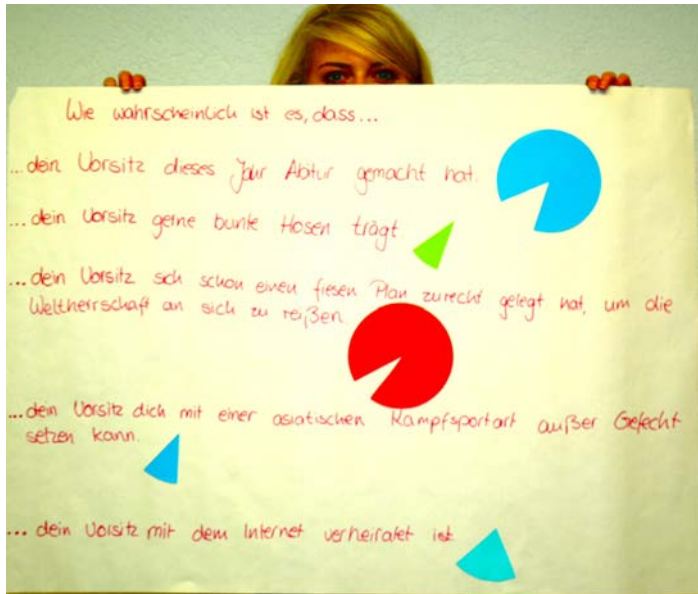 Wie wahrscheinlich ist es, dass...
...dein Vorsitz dieses Jahr Abitur gemacht hat.
...dein Vorsitz gerne bunte Hosen trägt
...dein Vorsitz sich schon einen fiesen Plan zurecht gelegt hat, um die
Weltherrschaft an sich zu reißen.
...dein Vorsitz dich mit einer asiatischen Kampfsportart außer Gefecht
setzen kann.
... dein Vorsitz mit dem Internet verheiratet ist